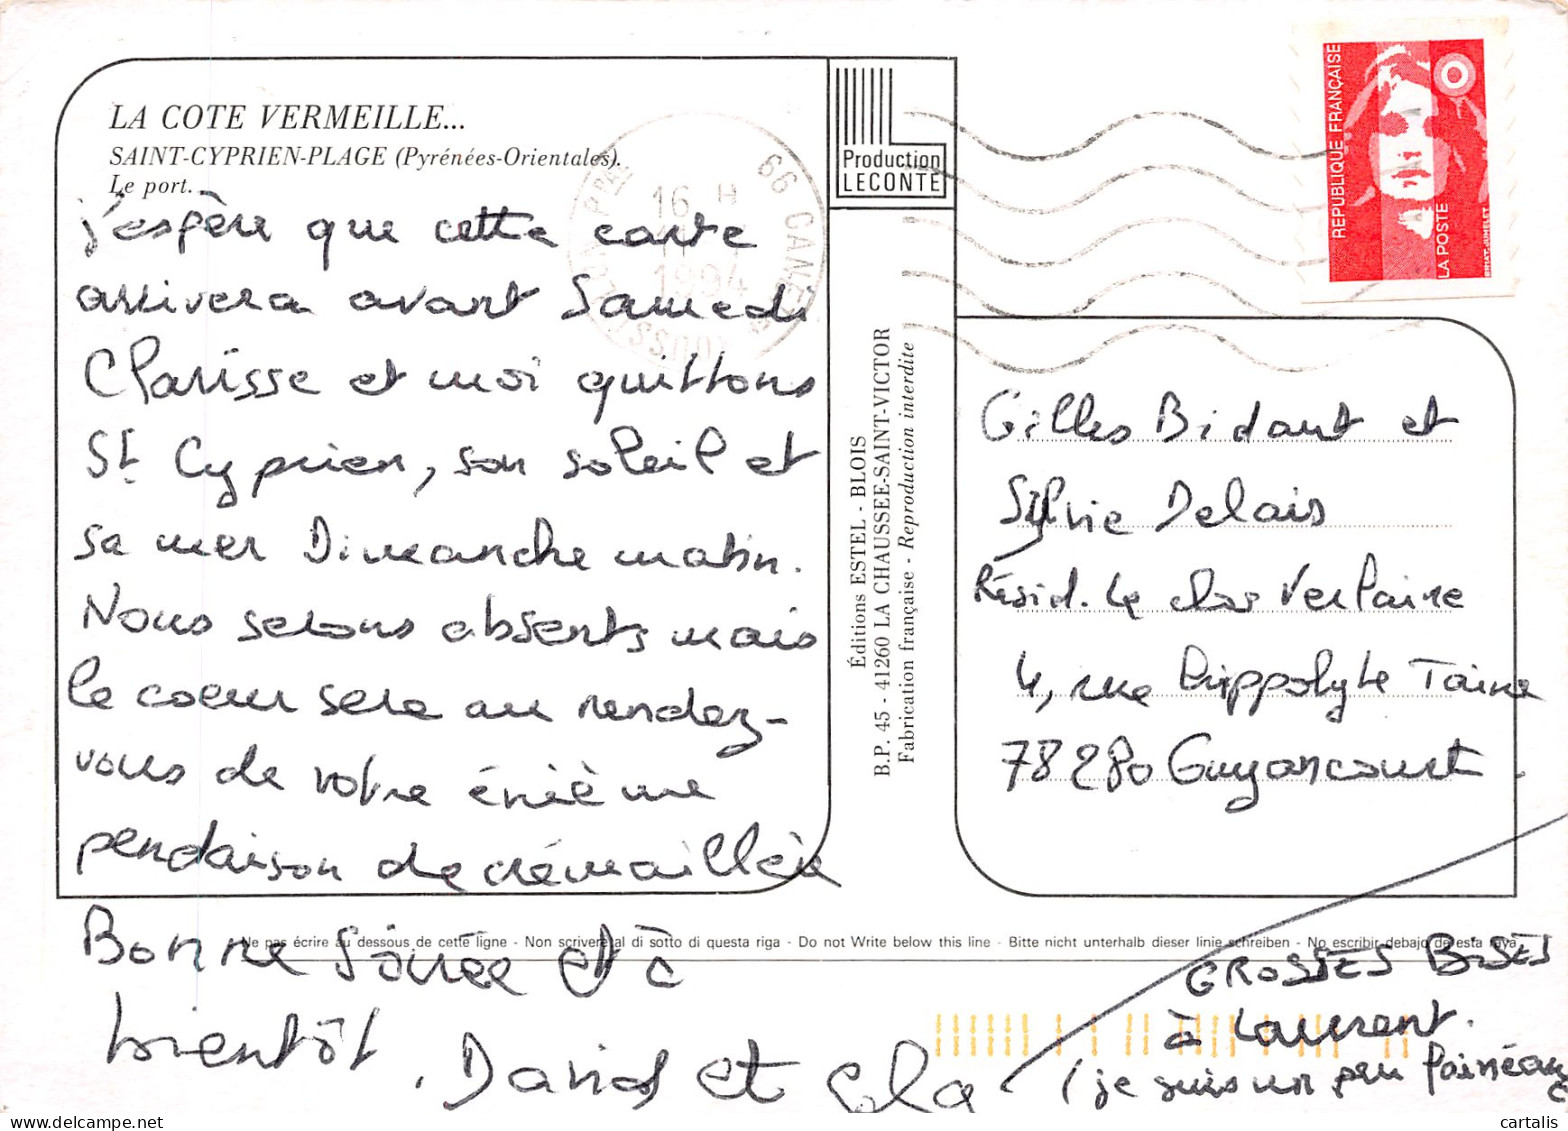 LA COTE VERMEILLE...
SAINT-CYPRIEN-PLAGE (Pyrénées-Orientales).
Le port.
j'espère que cette carte
arrivera avant Samedi
Clarisse et moi quittons
St Cyprien, son soleil et
sa mer Dimanche matin.
Nous serons absents mais
le coeur sera au rendez-
vous de votre énième
pendaison de crémaillère
Bonne Soirée et à
bientôt.
David et
Production
LECONTE
Éditions ESTEL - BLOIS
B.P. 45 - 41260 LA CHAUSSEE-SAINT-VICTOR
Fabrication française - Reproduction interdite
66 CANET
16 H
1994
REPUBLIQUE FRANÇAISE
LA POSTE
BRIAT-JUMELET
Gilles Bidaut et
Sylvie Delais
Résid. Le clos Verlaine
4, rue Hippolyte Taine
78280 Guyancourt.
Ne pas écrire au dessous de cette ligne - Non scrivere al di sotto di questa riga - Do not Write below this line - Bitte nicht unterhalb dieser linie schreiben - No escribir debajo de esta raya
GROSSES BISES
à Laurent.
(je suis un peu Fainéant
cartalis